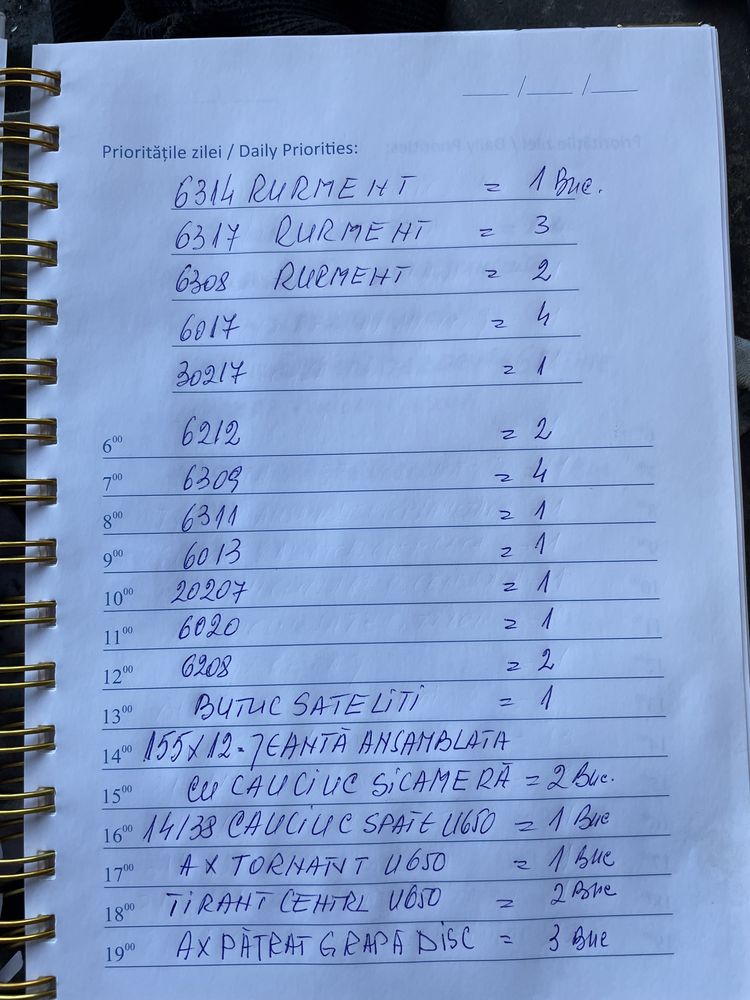 ___ /___ /___
Prioritățile zilei / Daily Priorities:
6314 RURMENT = 1 Buc.
6317 RURMENT = 3
6308 RURMENT = 2
6017 = 4
30217 = 1
6⁰⁰ 6212 = 2
7⁰⁰ 6309 = 4
8⁰⁰ 6311 = 1
9⁰⁰ 6013 = 1
10⁰⁰ 20207 = 1
11⁰⁰ 6020 = 1
12⁰⁰ 6208 = 2
13⁰⁰ BUTUC SATELITI = 1
14⁰⁰ 155X12 = JEANTĂ ANSAMBLATA
15⁰⁰ CU CAUCIUC SI CAMERĂ = 2 Buc.
16⁰⁰ 14/38 CAUCIUC SPATE U650 = 1 Buc
17⁰⁰ AX TORNANT U650 = 1 Buc
18⁰⁰ TIRANT CENTRL U650 = 2 Buc
19⁰⁰ AX PĂTRAT GRAPĂ DISC = 3 Buc